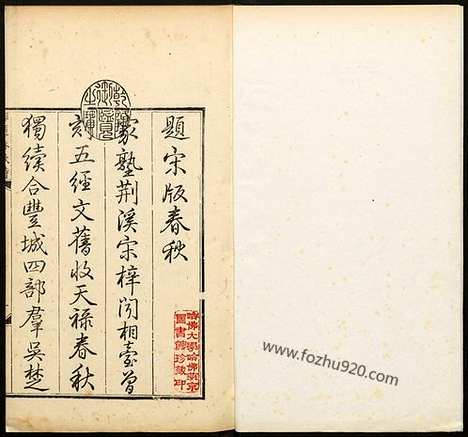 題宋版春秋
家塾荆溪宋梓聞相臺曾
刻五經文舊收天祿春秋
獨續合豐城四部羣吳楚
乾隆御覽之寶
哈佛大學哈佛燕京
圖書館珍藏印
www.fozhu920.com